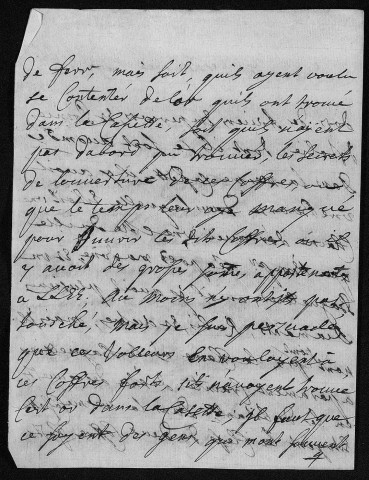 de ferr, mais soit, quils ayent voulu
se Contenter de lor quils ont trouvé
dans la Casette, soit quils nayent
pas dabord pu trouver les secrets
de louverture de ces Coffres
que le temps leur aye manqué
pour ouvrir les dits Coffres ou il
y avoit de grosses sommes appartenants
a
touché, mais je suis persuadé
que ces Voleurs en vouloyent a
ces Coffres forts, sils navoyent trouvé
cet or dans la Casette il faut que
ce soyent des gens qui mont souvent